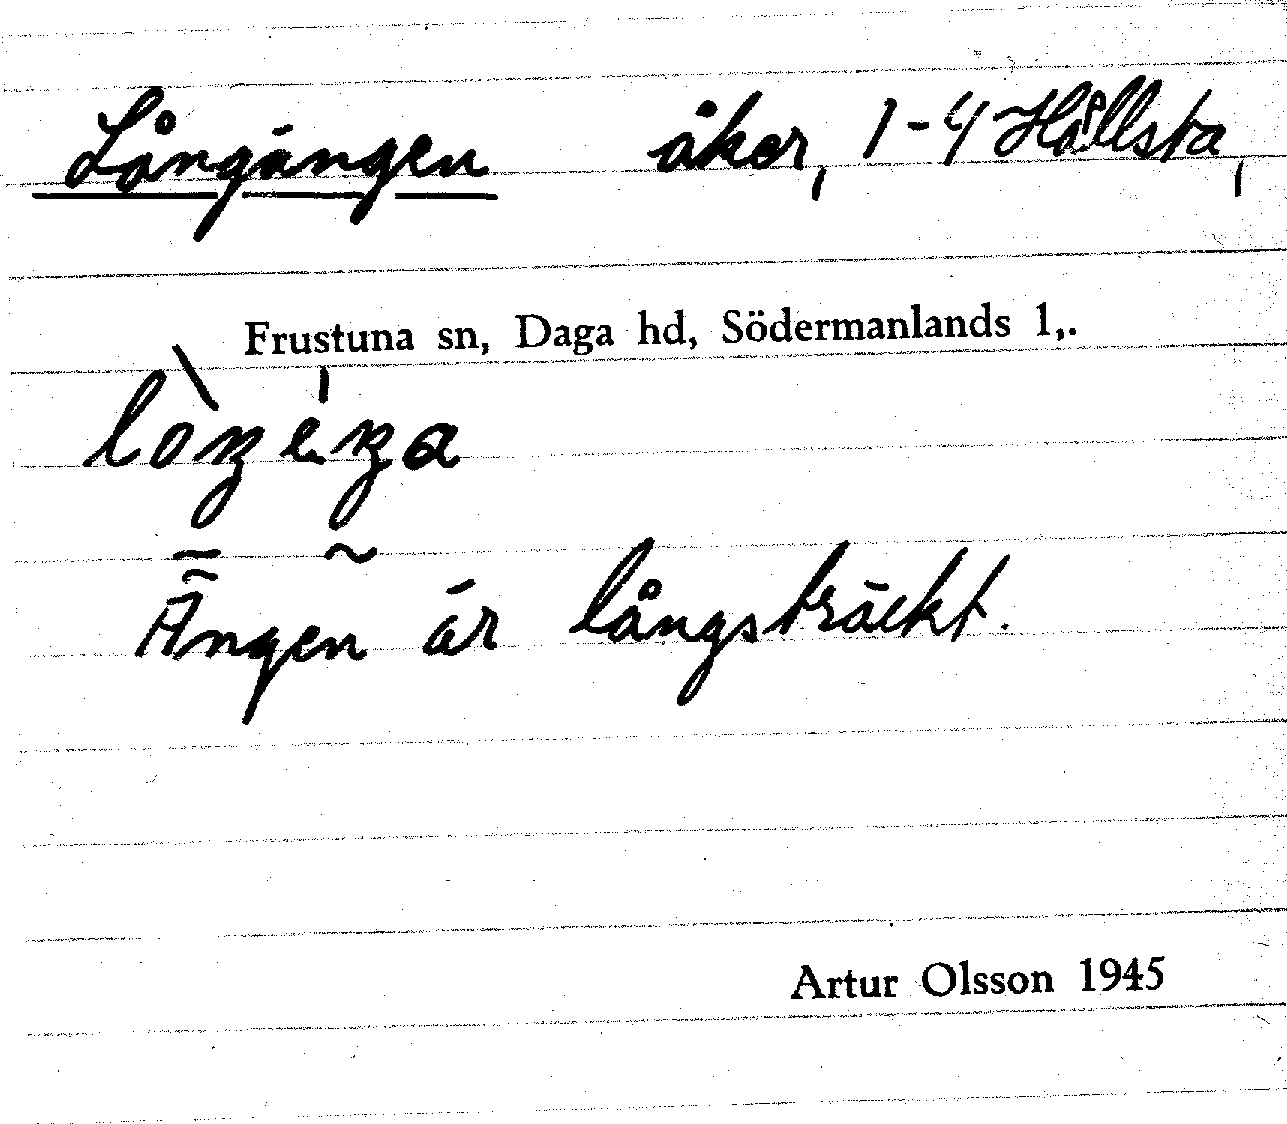 Långängen åker, 1-4 Hållsta,
Frustuna sn, Daga hd, Södermanlands l,.
lòŋéŋa
Ängen är långsträckt.
Artur Olsson 1945